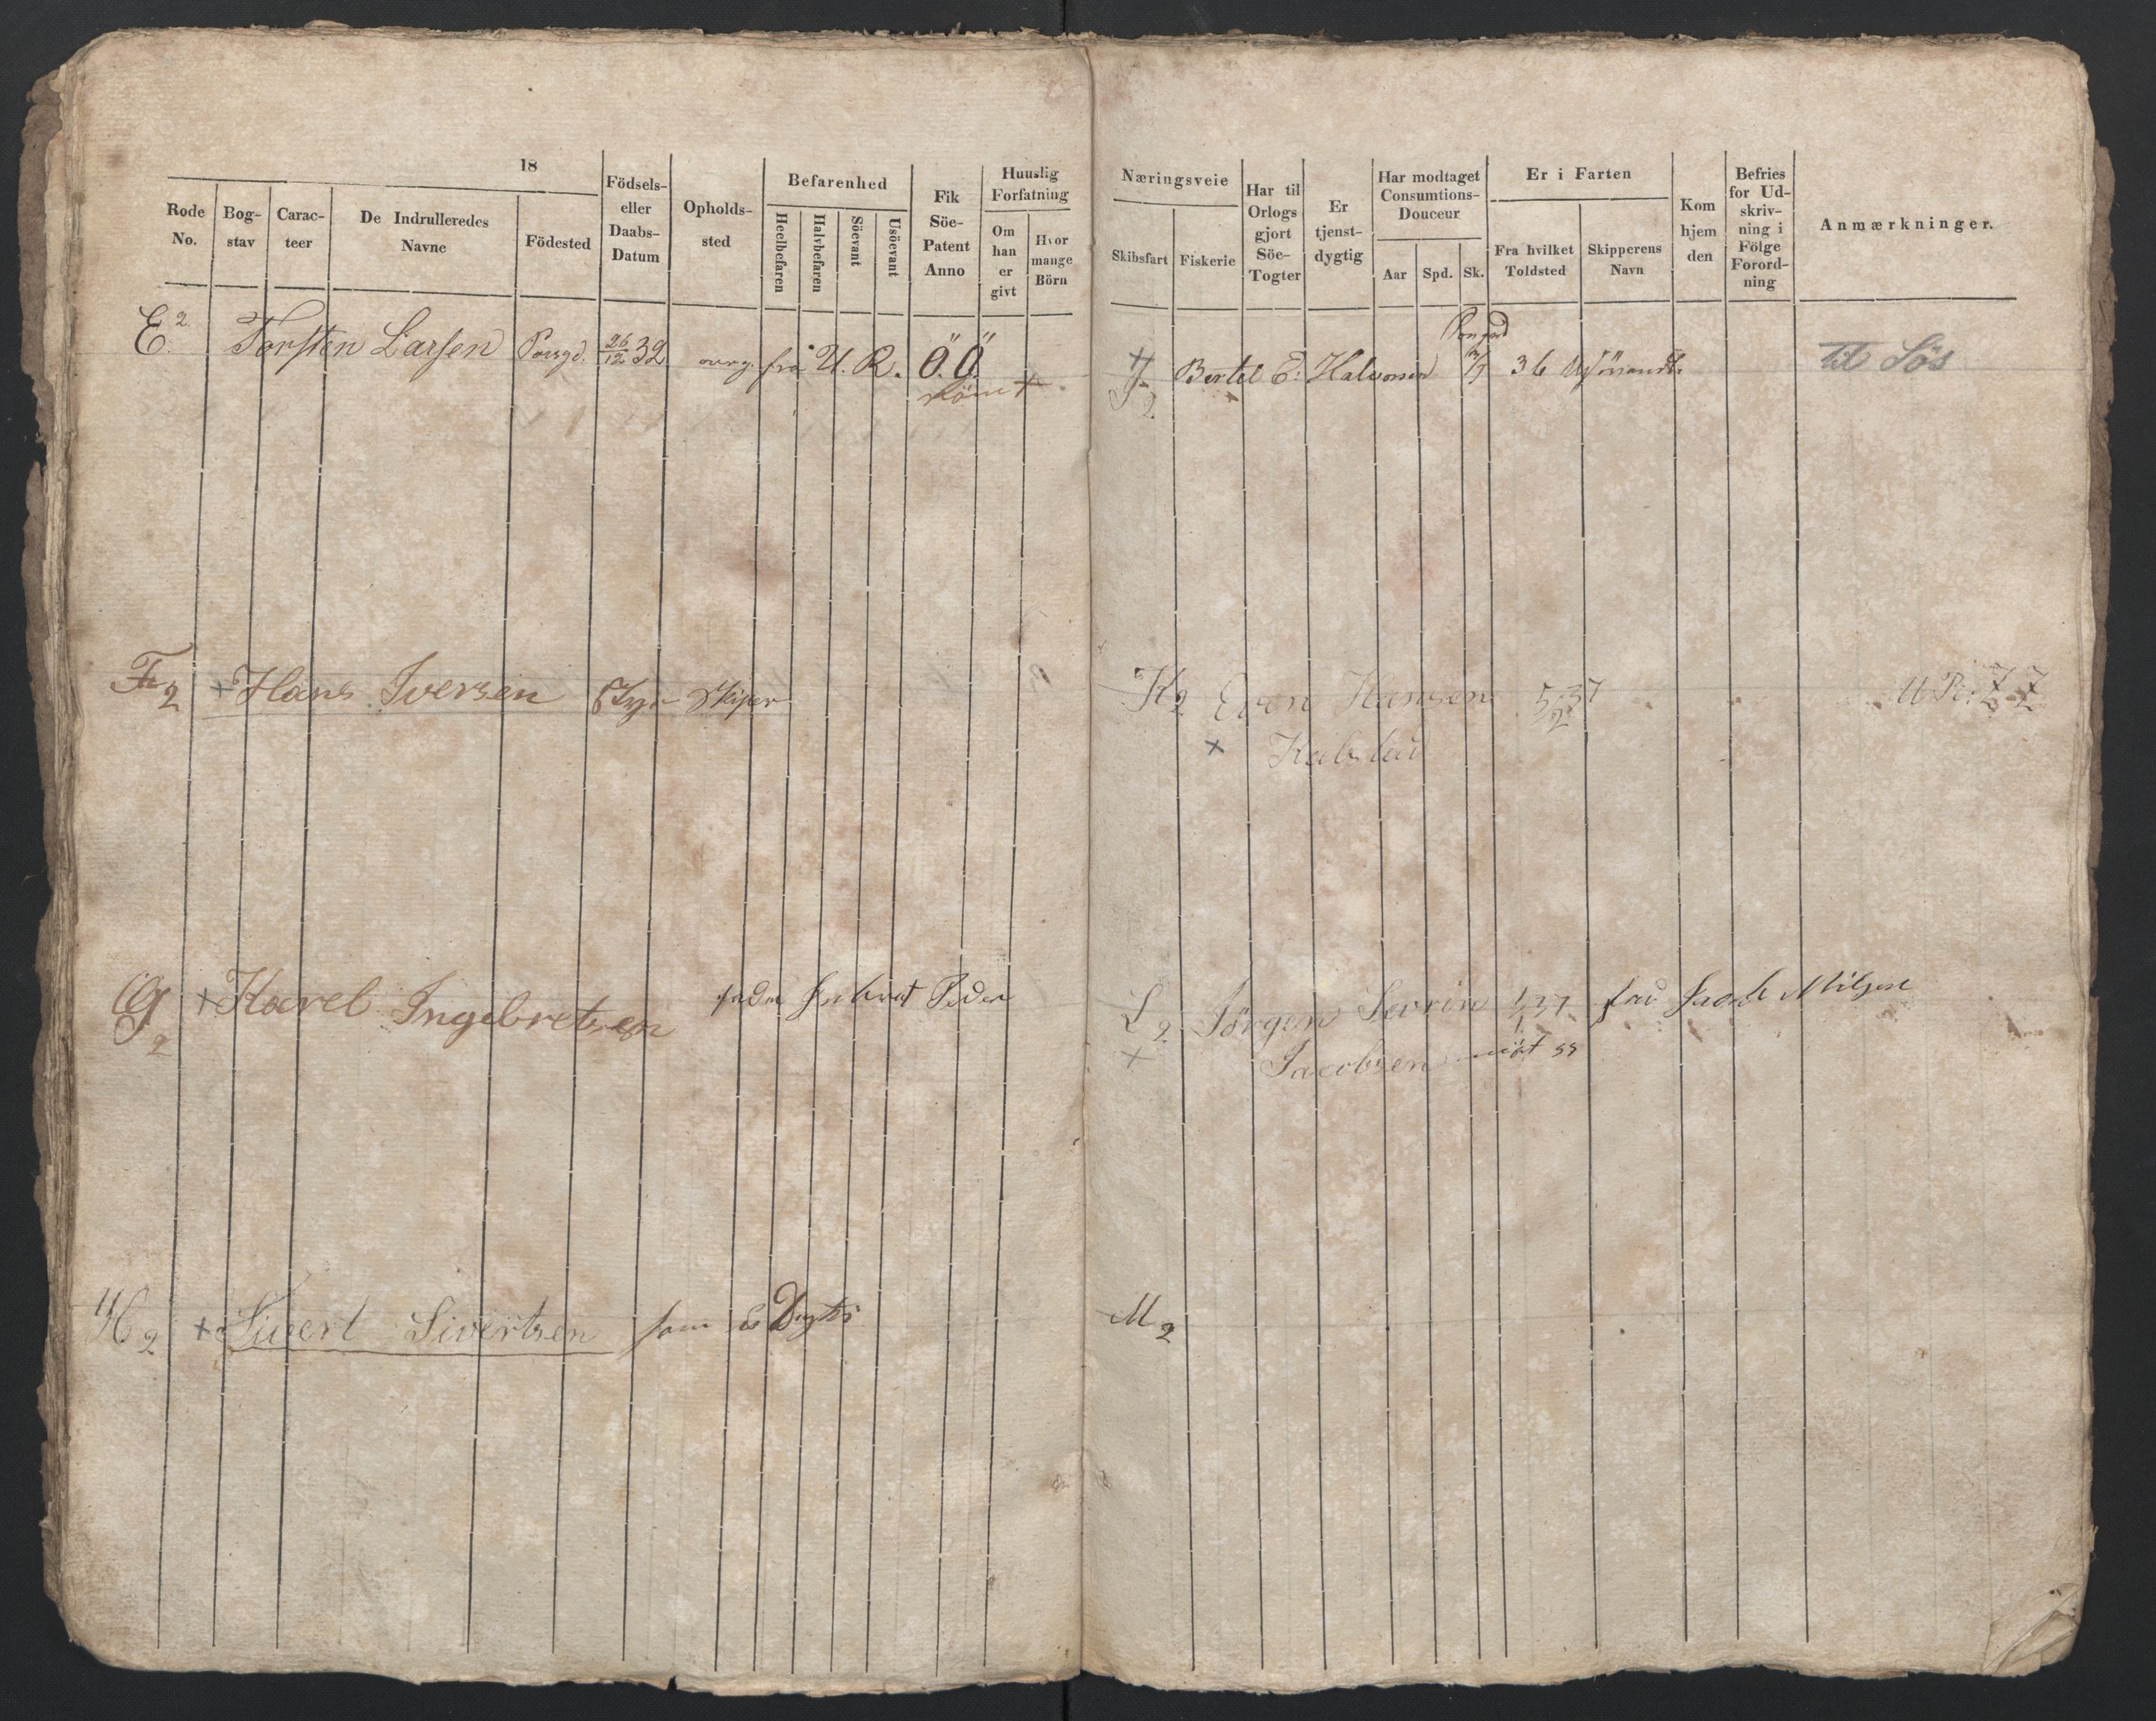 18
Rode No.
Bog-stav
Carac-teer
De Indrulleredes Navne
Födested
Födsels- eller Daabs-Datum
Opholds-sted
Befarenhed
Heelbefaren
Halvbefaren
Söevant
Usöevant
Fik Söe-Patent Anno
Huuslig Forfatning
Om han er givt
Hvor mange Börn
E 2 Torsten Larsen Porsgd. 26/12 32 overg. fra U. R. Ö.Ö
F 2 + Hans Iversen
G 2 + Karel Ingebretsen
H 2 + Sivert Sivertsen
Næringsveie
Skibsfart
Fiskerie
Har til Orlogs gjort Söe-Togter
Er tjenst-dygtig
Har modtaget Consumtions-Douceur
Aar
Spd.
Sk.
Er i Farten
Fra hvilket Toldsted
Skipperens Navn
Kom hjem den
Befries for Ud-skriv-ning i Fölge Forord-ning
Anmærkninger.
J 2 Bertel E. Halvorsen 36 til Søs
K 2 Even Hansen 5/2 37
+
L 2 Jörgen Severin 37
+ Jacobsen
M 2